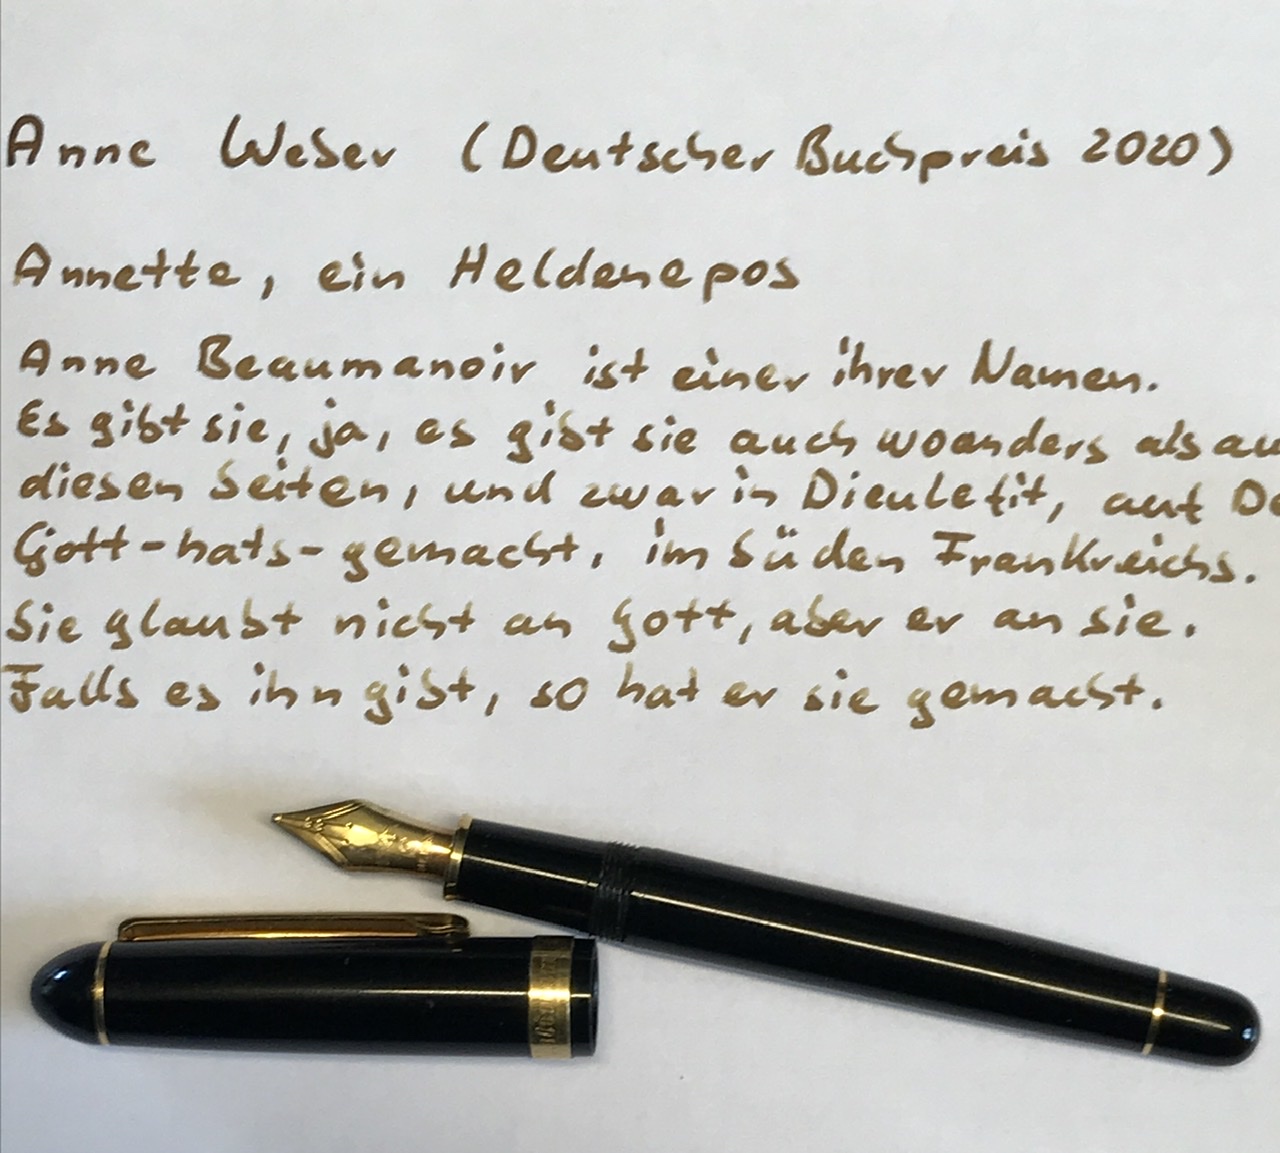 Anne Weber (Deutscher Buchpreis 2020)
Annette, ein Heldenepos
Anne Beaumanoir ist einer ihrer Namen.
Es gibt sie, ja, es gibt sie auch woanders als au
diesen Seiten, und zwar in Dieulefit, auf De
Gott-hats-gemacht, im Süden Frankreichs.
Sie glaubt nicht an Gott, aber er an sie.
Falls es ihn gibt, so hat er sie gemacht.